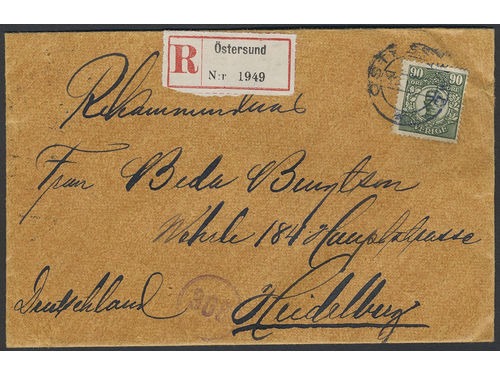 R
Östersund
N:r 1949
90 90
SVERIGE
Rekommenderas
Frau Beda Bengtson
Wehrle 184 Hauptstrasse
Deutschland Heidelberg